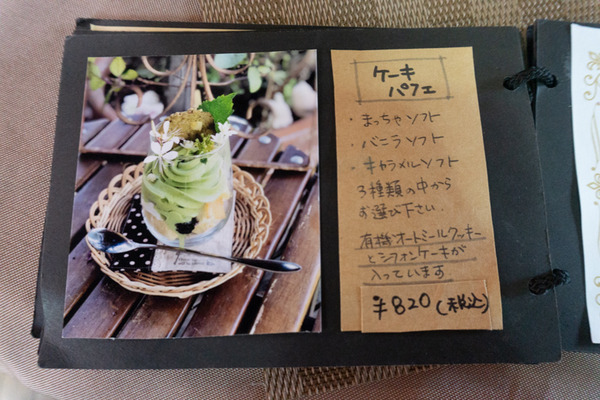 ケーキ
パフェ
・まっちゃソフト
・バニラソフト
・キャラメルソフト
3種類の中から
お選び下さい.
有機オートミールクッキー
とシフォンケーキが
入っています
¥820(税込)